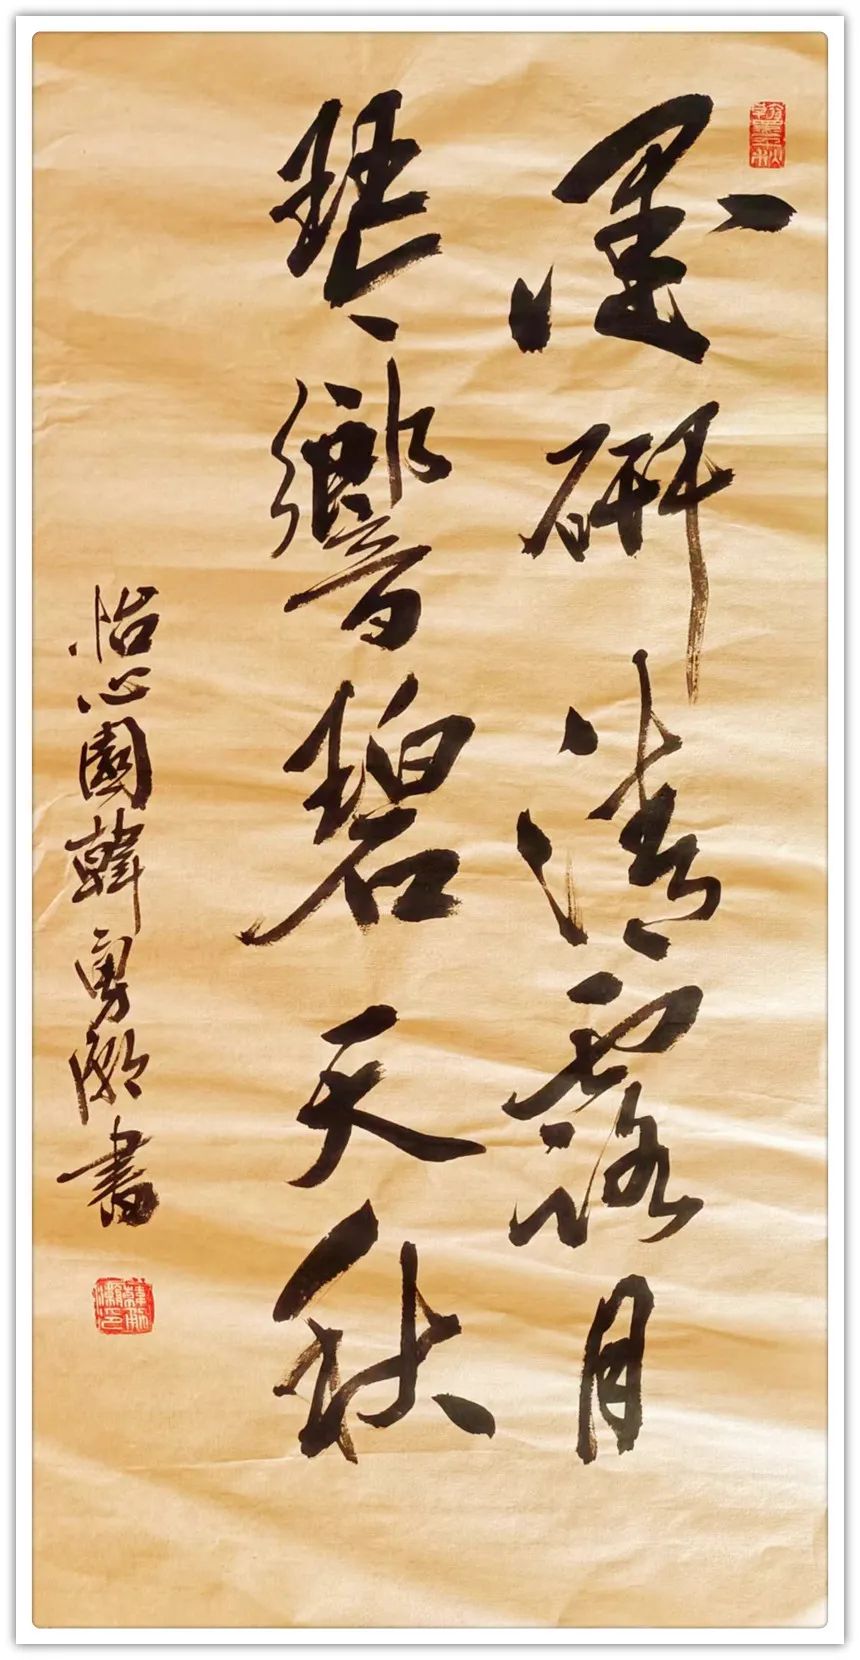 墨研清露月
琴響碧天秋
怡心園韓勇灝書